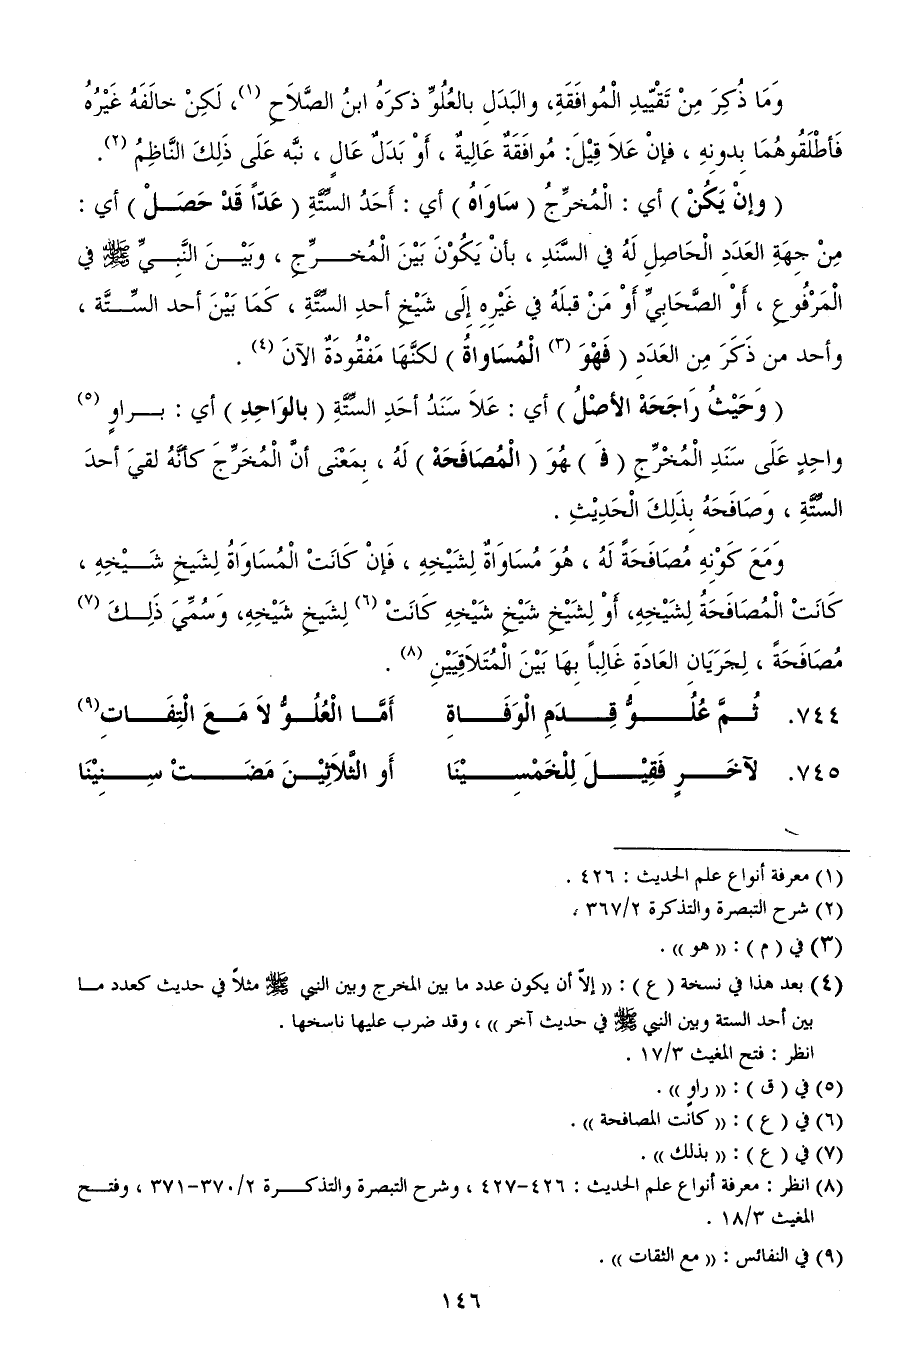 وَمَا ذُكِرَ مِنْ تَقْيِيدِ الْمُوافَقَةِ، والبَدَلِ بالعُلُوِّ ذكرَهُ ابنُ الصَّلاَحِ (١)، لَكِنْ خالَفَهُ غَيْرُهُ
فَأطْلَقُوهُمَا بِدونِهِ ، فإنْ عَلاَ قِيْلَ: مُوافَقَةٌ عَالِيةٌ ، أَوْ بَدَلٌ عَالٍ ، نبَّه عَلَى ذَلِكَ النَّاظِمُ (٢).
( وإنْ يَكُنْ ) أي : الْمُخرِّجُ ( سَاوَاهُ ) أي : أَحَدُ السِّتَّةِ ( عَدّاً قَدْ حَصَـلْ ) أي :
مِنْ جِهَةِ العَدَدِ الْحَاصِلِ لَهُ في السَّنَدِ ، بأنْ يَكُوْنَ بَيْنَ الْمُخـرِّجِ ، وبَيْـنَ النَّبـيِّ ﷺ في
الْمَرْفُوعِ ، أَوْ الصَّحَابيِّ أَوْ مَنْ قبلَهُ في غَيْرِهِ إلَى شَيْخِ أحدِ السِّتَّةِ ، كَمَا بَيْنَ أحد السِّـتَّة ،
وأحد من ذَكَرَ مِن العَدَدِ ( فَهْوَ (٣) الْمُسَاواةُ ) لكنَّهَا مَفْقُودَةٌ الآنَ (٤) .
( وَحَيْثُ رَاجَحَهْ الأصْلُ ) أي : عَلاَ سَنَدُ أحَدِ السِّتَّةِ ( بالوَاحِدِ ) أي : بـراوٍ (٥)
واحِدٍ عَلَى سَنَدِ الْمُخْرِّجِ ( فَ ) هُوَ ( الْمُصَافَحَهْ ) لَهُ ، بِمَعْنَى أنَّ الْمُخَرِّجَ كأنَّهُ لقيَ أحدَ
السِّتَّةِ ، وَصَافَحَهُ بِذَلِكَ الْحَدِيْثِ .
وَمَعَ كَوْنِهِ مُصَافَحَةً لَهُ ، هُوَ مُسَاوَاةٌ لِشَيْخِهِ ، فَإنْ كَانَتْ الْمُسَاوَاةُ لِشَيخِ شَـيْخِهِ ،
كَانَتْ الْمُصَافَحَةُ لِشَيْخِهِ، أَوْ لِشَيْخِ شَيْخِ شَيْخِهِ كَانَتْ (٦) لِشَيخِ شَيْخِهِ، وَسُمِّيَ ذَلِـكَ (٧)
مُصَافَحَةً ، لِجَرَيَانِ العَادَةِ غَالِباً بِهَا بَيْنَ الْمُتَلاَقِيَيْنِ (٨) .
٧٤٤. ثُـمَّ عُلُـوُّ قِـدَمِ الْوَفَـاةِ أَمَّـا الْعُلُـوُّ لاَ مَـعَ الْتِفَـاتِ(٩)
٧٤٥. لآخَـرٍ فَقِيْـلَ لِلْخَمْسِـيْنَا أَوِ الثَّلاَثِيْـنَ مَضَـتْ سِـنِيْنَا
(١) معرفة أنواع علم الحديث : ٤٢٦ .
(٢) شرح التبصرة والتذكرة ٣٦٧/٢ ،
(٣) في ( م ) : (( هو )) .
(٤) بعد هذا في نسخة ( ع ) : (( إلاّ أن يكون عدد ما بين المخرج وبين النبي ﷺ مثلاً في حديث كعدد مـا
بين أحد الستة وبين النبي ﷺ في حديث آخر )) ، وقد ضرب عليها ناسخها .
انظر : فتح المغيث ١٧/٣ .
(٥) في ( ق ) : (( راوٍ )) .
(٦) في ( ع ) : (( كانت المصافحة )) .
(٧) في ( ع ) : (( بذلك )) .
(٨) انظر : معرفة أنواع علم الحديث : ٤٢٦-٤٢٧ ، وشرح التبصرة والتذكـرة ٣٧٠/٢-٣٧١ ، وفتـح
المغيث ١٨/٣ .
(٩) في النفائس : (( مع الثقات )) .
١٤٦